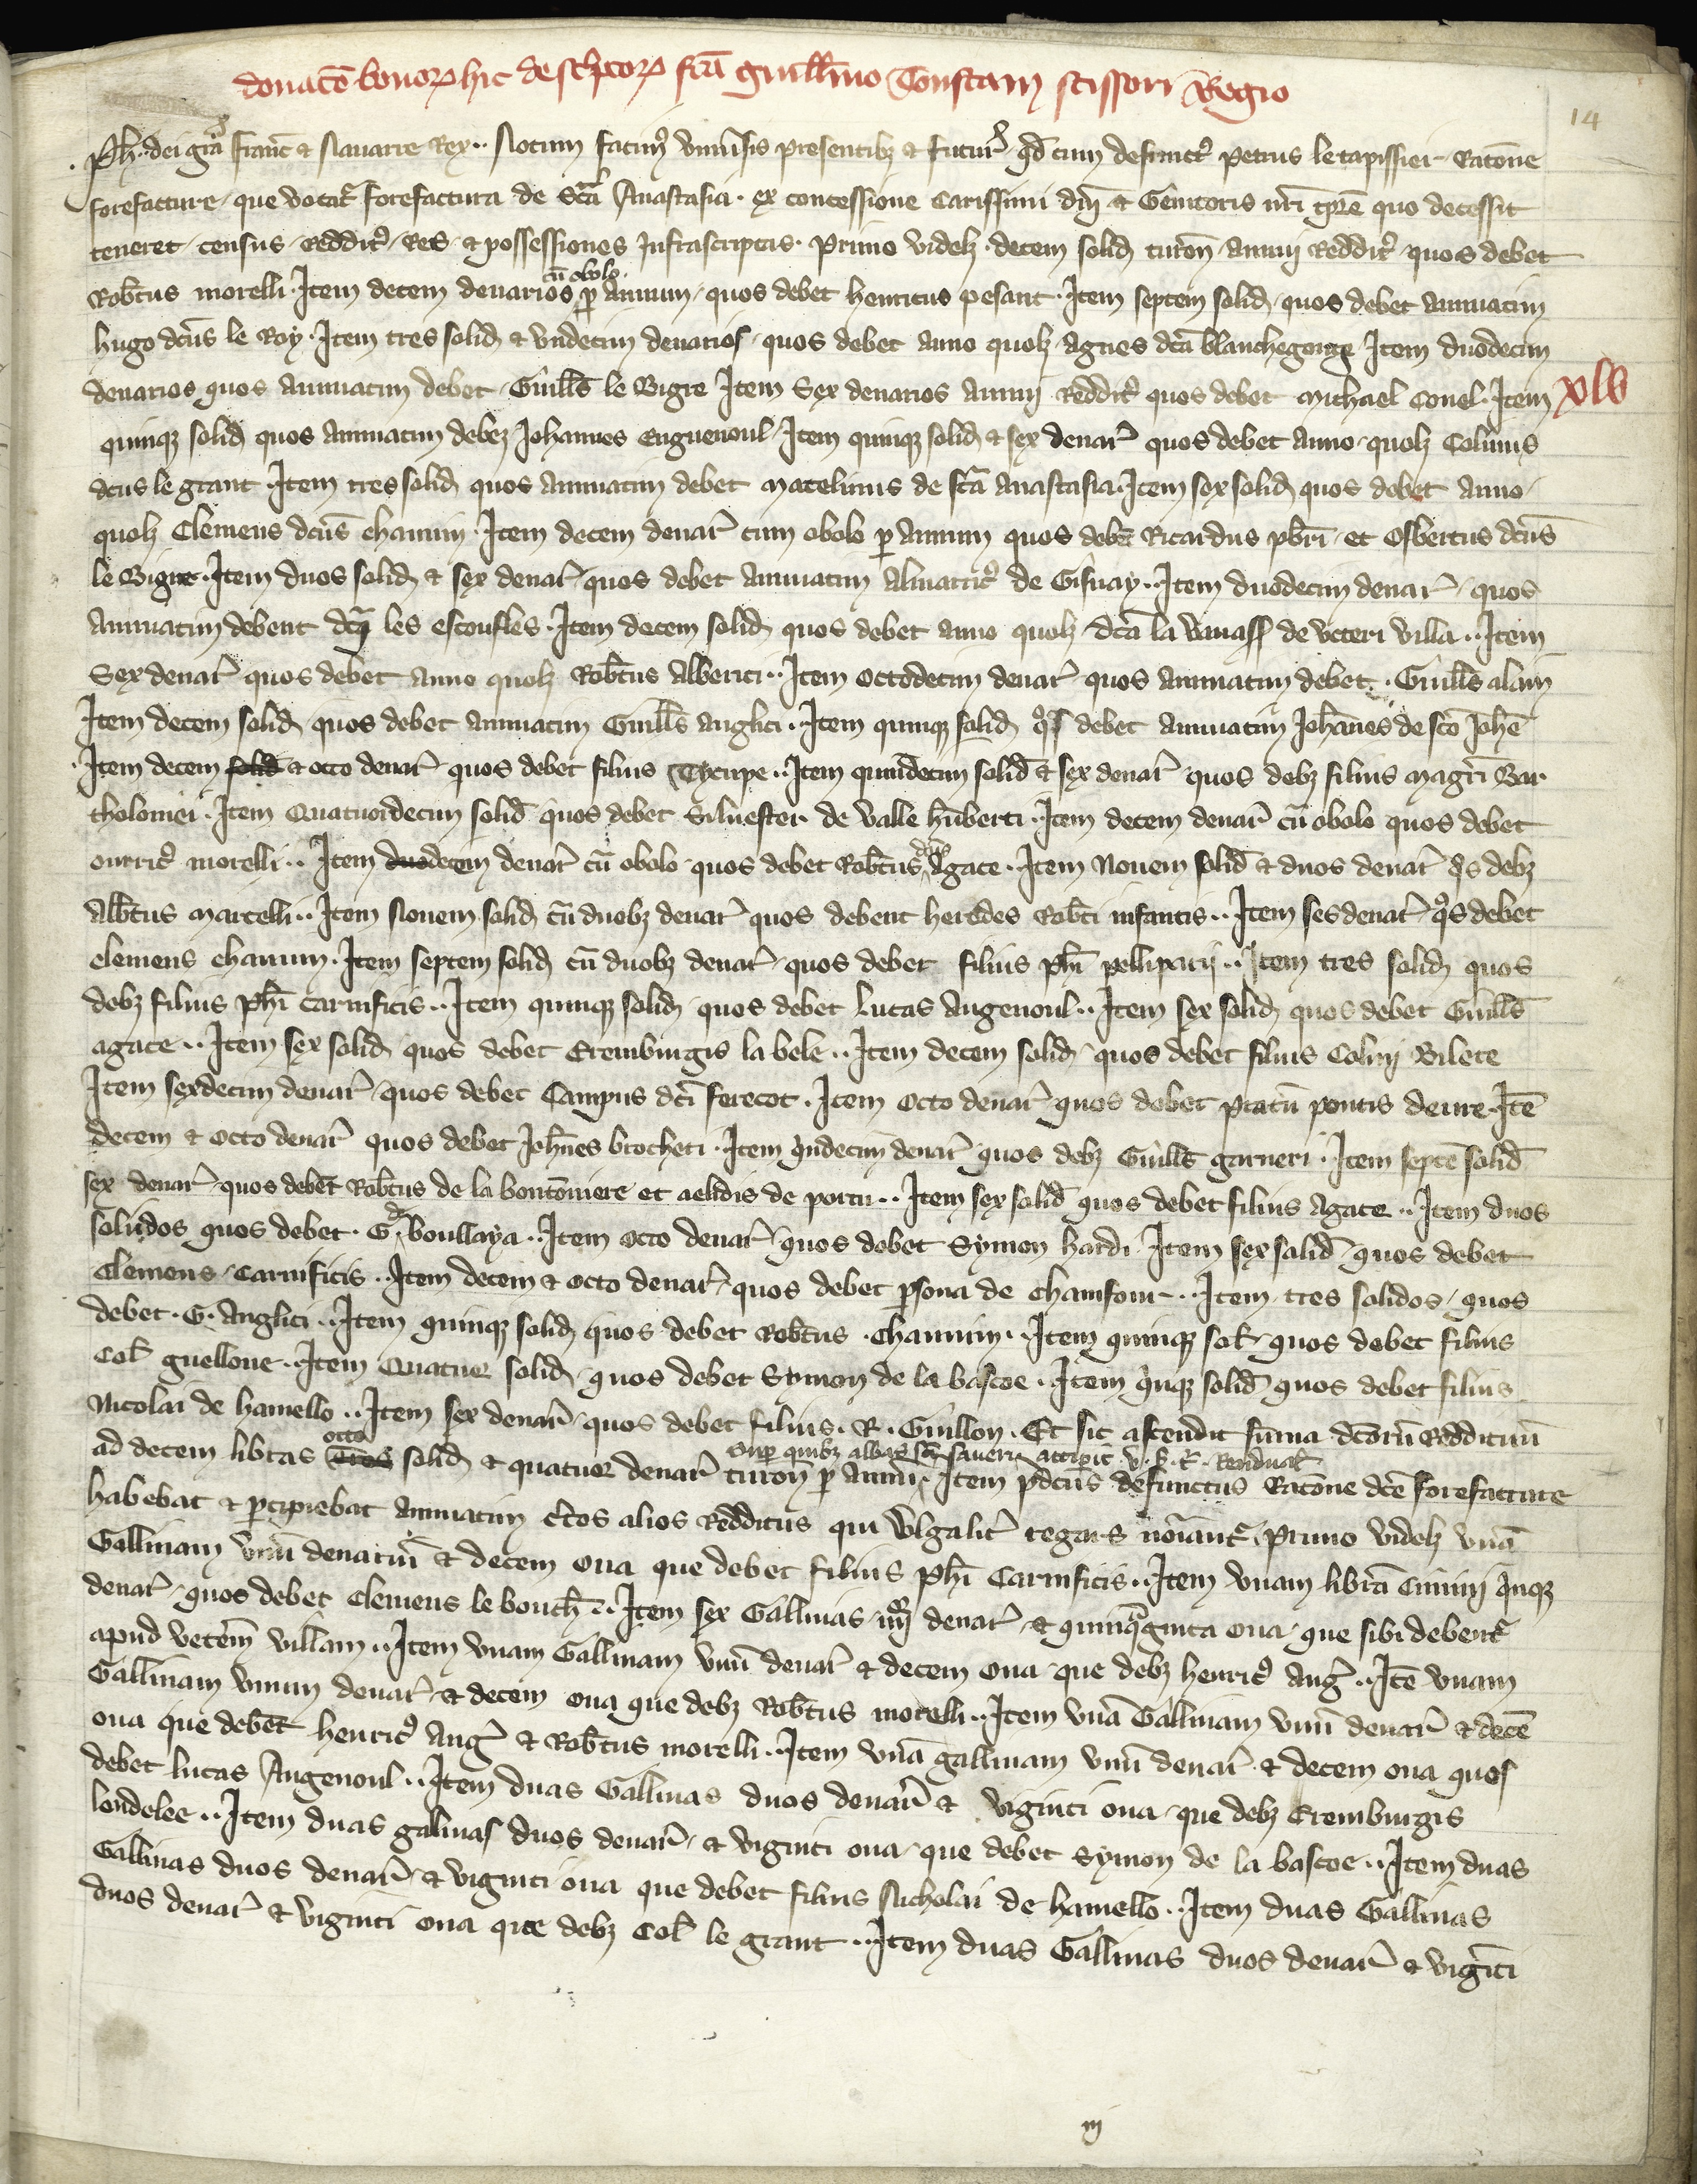 donacõ bonoꝝ hic descͥptoꝝ fcã guillmo Constanꝯ scissori Regio
14
Ph̃. dei gr̃a Franc̃ & Nauarre Rex. Notum facimꝰ vniũsis presentibꝫ & futur̃ ꝙd cum defunctꝰ Petrus le tapissier Ratõne
forefacture que vocat᷑ forefactura de Sc̃a Anastasia. ex concessione Carissimi dñi & Genitoris nr̃i tp̃re quo decessit
teneret census Redditꝰ Res & possessiones Infrascriptas. Primo videlꝫ decem solid turoñ annui Redditꝰ quos debet
Rob̃tus morelli. Item decem denarios cũ obolo ꝑ Annum quos debet henricus pesant. Item septem solid quos debet annuatim
hugo dc̃us le Roy. Item tres solid & vndecim denarios quos debet anno quolꝫ Agnes dc̃a blanchegorge Item duodecim
denarios quos annuatim debet Guill̃s le Bigre Item Sex denarios annui Redditꝰ quos debet Michael Conel. Item
xlv
quinqꝫ solid quos annuatim debeꝫ Johannes Enguenoul Item quinqꝫ solid & sex denar̃ quos debet anno quolꝫ Colinus
dcus le grant Item tres solid quos annuatim debet Matelinus de sc̃a Anastasia. Item sex solid quos debet anno
quolꝫ Clemens dc̃us chanuin. Item decem denar̃ cum obolo ꝑ annum quos deb̃et Ricardus pb̃ri et Osbertus dc̃us
le Bigre. Item duos solid & sex denar̃ quos debet annuatim Almarricꝰ de Gisnay. Item duodecim denar̃ quos
annuatim debent dc̃i les escoufles. Item decem solid quos debet anno quolꝫ dc̃a la vauass de veteri villa. Item
Sex denar̃ quos debet anno quolꝫ Rob̃tus Alberici. Item octodecim denar̃ quos annuatim debet Guill̃s alain
Item decem solid quos debet annuatim Guill̃s anglici. Item quinqꝫ solid qͦs debet annuatim Joh̃anes de sc̃o Joh̃e
Item decem solid & octo denar̃ quos debet filius Theupe. Item quindecim solid & sex denar̃ quos debꝫ filius magr̃i Bar
tholomei. Item Quatuordecim solid quos debet Siluester de valle hũberti. Item decem denar̃ cũ obolo quos debet
ourricꝰ morelli. Item duodecim denar̃ cũ obolo quos debet Rob̃tus dc̃us Agace. Item Nouem solid & duos denar̃ qͦs debꝫ
Alb̃tus Marcelli. Item Nouem solid cũ duobꝫ denar̃ quos debent heredes Rob̃ti infantis. Item ses denar̃ qͦs debet
clemens chanuin. Item septem solid cũ duobꝫ denar̃ quos debet filius ph̃i pelliparii. Item tres solid quos
debꝫ filius ph̃i carnificis. Item quinqꝫ solid quos debet Lucas Augenoul. Item sex solid quos debet Guill̃s
agace. Item sex solid quos debet Eremburgis la bele. Item decem solid quos debet filius Colini Bilete
Item sexdecim denar̃ quos debet Campus dc̃i ferecot. Item octo denar̃ quos debet pratũ pontis deure. Itẽ
decem & octo denar̃ quos debet Joh̃nes brocheti. Item vndecim denar̃ quos debꝫ Guill̃s garneri. Item septẽ solid
sex denar̃ quos deb̃et Rob̃tus de la boutonniere et aelidis de portu. Item sex solid quos debet filius Agace. Item duos
solidos quos debet. G. de boullaya. Item octo denar̃ quos debet Symon hardi Item sex solid quos debet
Clemens Carnificis. Item decem & octo denar̃ quos debet ꝑsona de chamfour. Item tres solidos quos
debet. G. Anglici. Item quinqꝫ solid quos debet Rob̃tus chanuin. Item quinqꝫ sol̃ quos debet filius
Col̃ guellone. Item Quatuor solid quos debet Symon de la bascoe. Item qͥnqꝫ solid quos debet filius
Nicolai de hamello. Item sex denar̃ quos debet filius. R. Guillon. Et sic ascendit sũma dc̃orũ Reddituũ
ad decem libras tres octo solid & quatuor denar̃ turoñ ꝑ Annũ. Suꝑ quibꝫ abbas sc̃i Saueri accipit. v. s. R̃. Residual̃ Item p̃dc̃us defunctus Ratõne dc̃e forefacture
habebat & ꝑcipiebat annuatim c̃tos alios Redditus qui vlgalit᷑ regars nõiant᷑ Primo videlꝫ vnã
Gallinam vnũ denariũ & decem oua que debet filius ph̃i Carnificis. Item vnam librã Cimini qͥnqꝫ
denar̃ quos debet Clemens le bouch̃. Item sex Gallinas iiijͦʳ denar̃ & quinqͣginta oua que sibi debent᷑
apud vet̃em villam. Item vnam Gallinam vnũ denar̃ & decem oua que debꝫ henricꝰ Ang̃. Itẽ vnam
Gallinam vnum denar̃ & decem oua que debꝫ Rob̃tus morelli. Item vnã Gallinam vnũ denar̃ & decẽ
oua que deb̃et henricꝰ Ang̃ & Rob̃tus morelli. Item vnã gallinam vnũ denar̃ & decem oua quos
debet lucas Augenoul. Item duas Gallinas duos denar̃ & viginti oua que debꝫ Eremburgis
londelee. Item duas galinas duos denar̃ & viginti oua que debet Symon de la bascoe. Item duas
Gallinas duos denar̃ & viginti oua que debet filius Nicholai de hamello. Item duas Gallinas
duos denar̃ & viginti oua que debꝫ Col̃ le grant. Item duas Gallinas duos denar̃ & vigĩti
iij